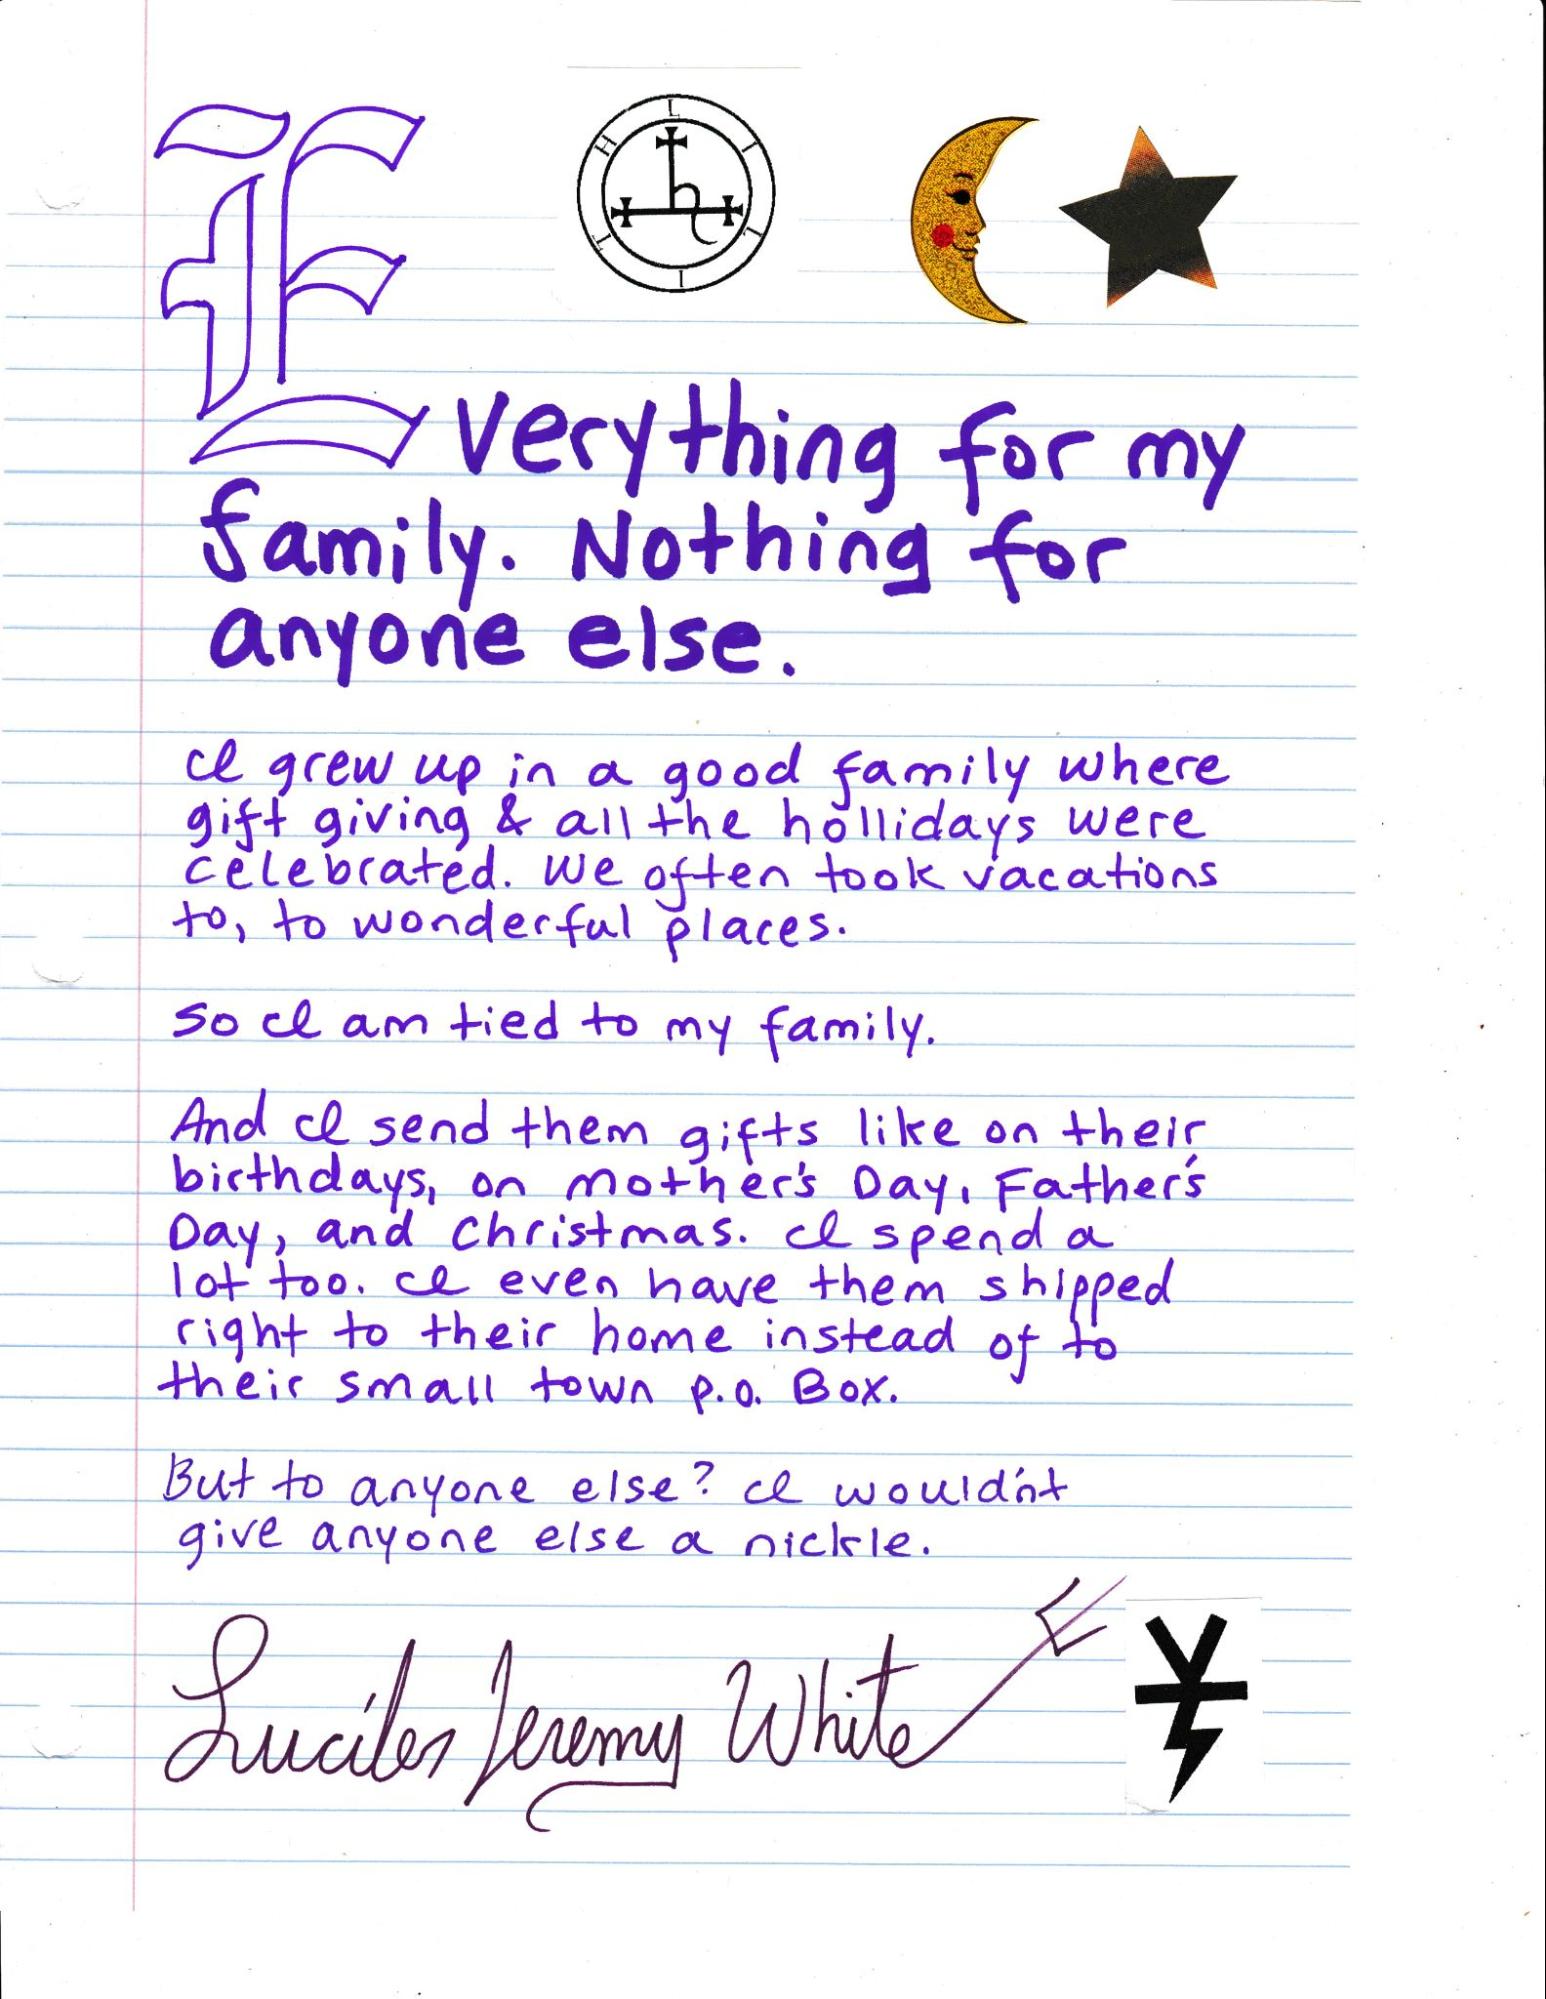 LILITH
Everything for my
family. Nothing for
anyone else.
I grew up in a good family where
gift giving & all the hollidays were
celebrated. We often took vacations
to, to wonderful places.
So I am tied to my family.
And I send them gifts like on their
birthdays, on Mother's Day, Father's
Day, and Christmas. I spend a
lot too. I even have them shipped
right to their home instead of to
their small town P.O. Box.
But to anyone else? I would'nt
give anyone else a nickle.
Jeremy White